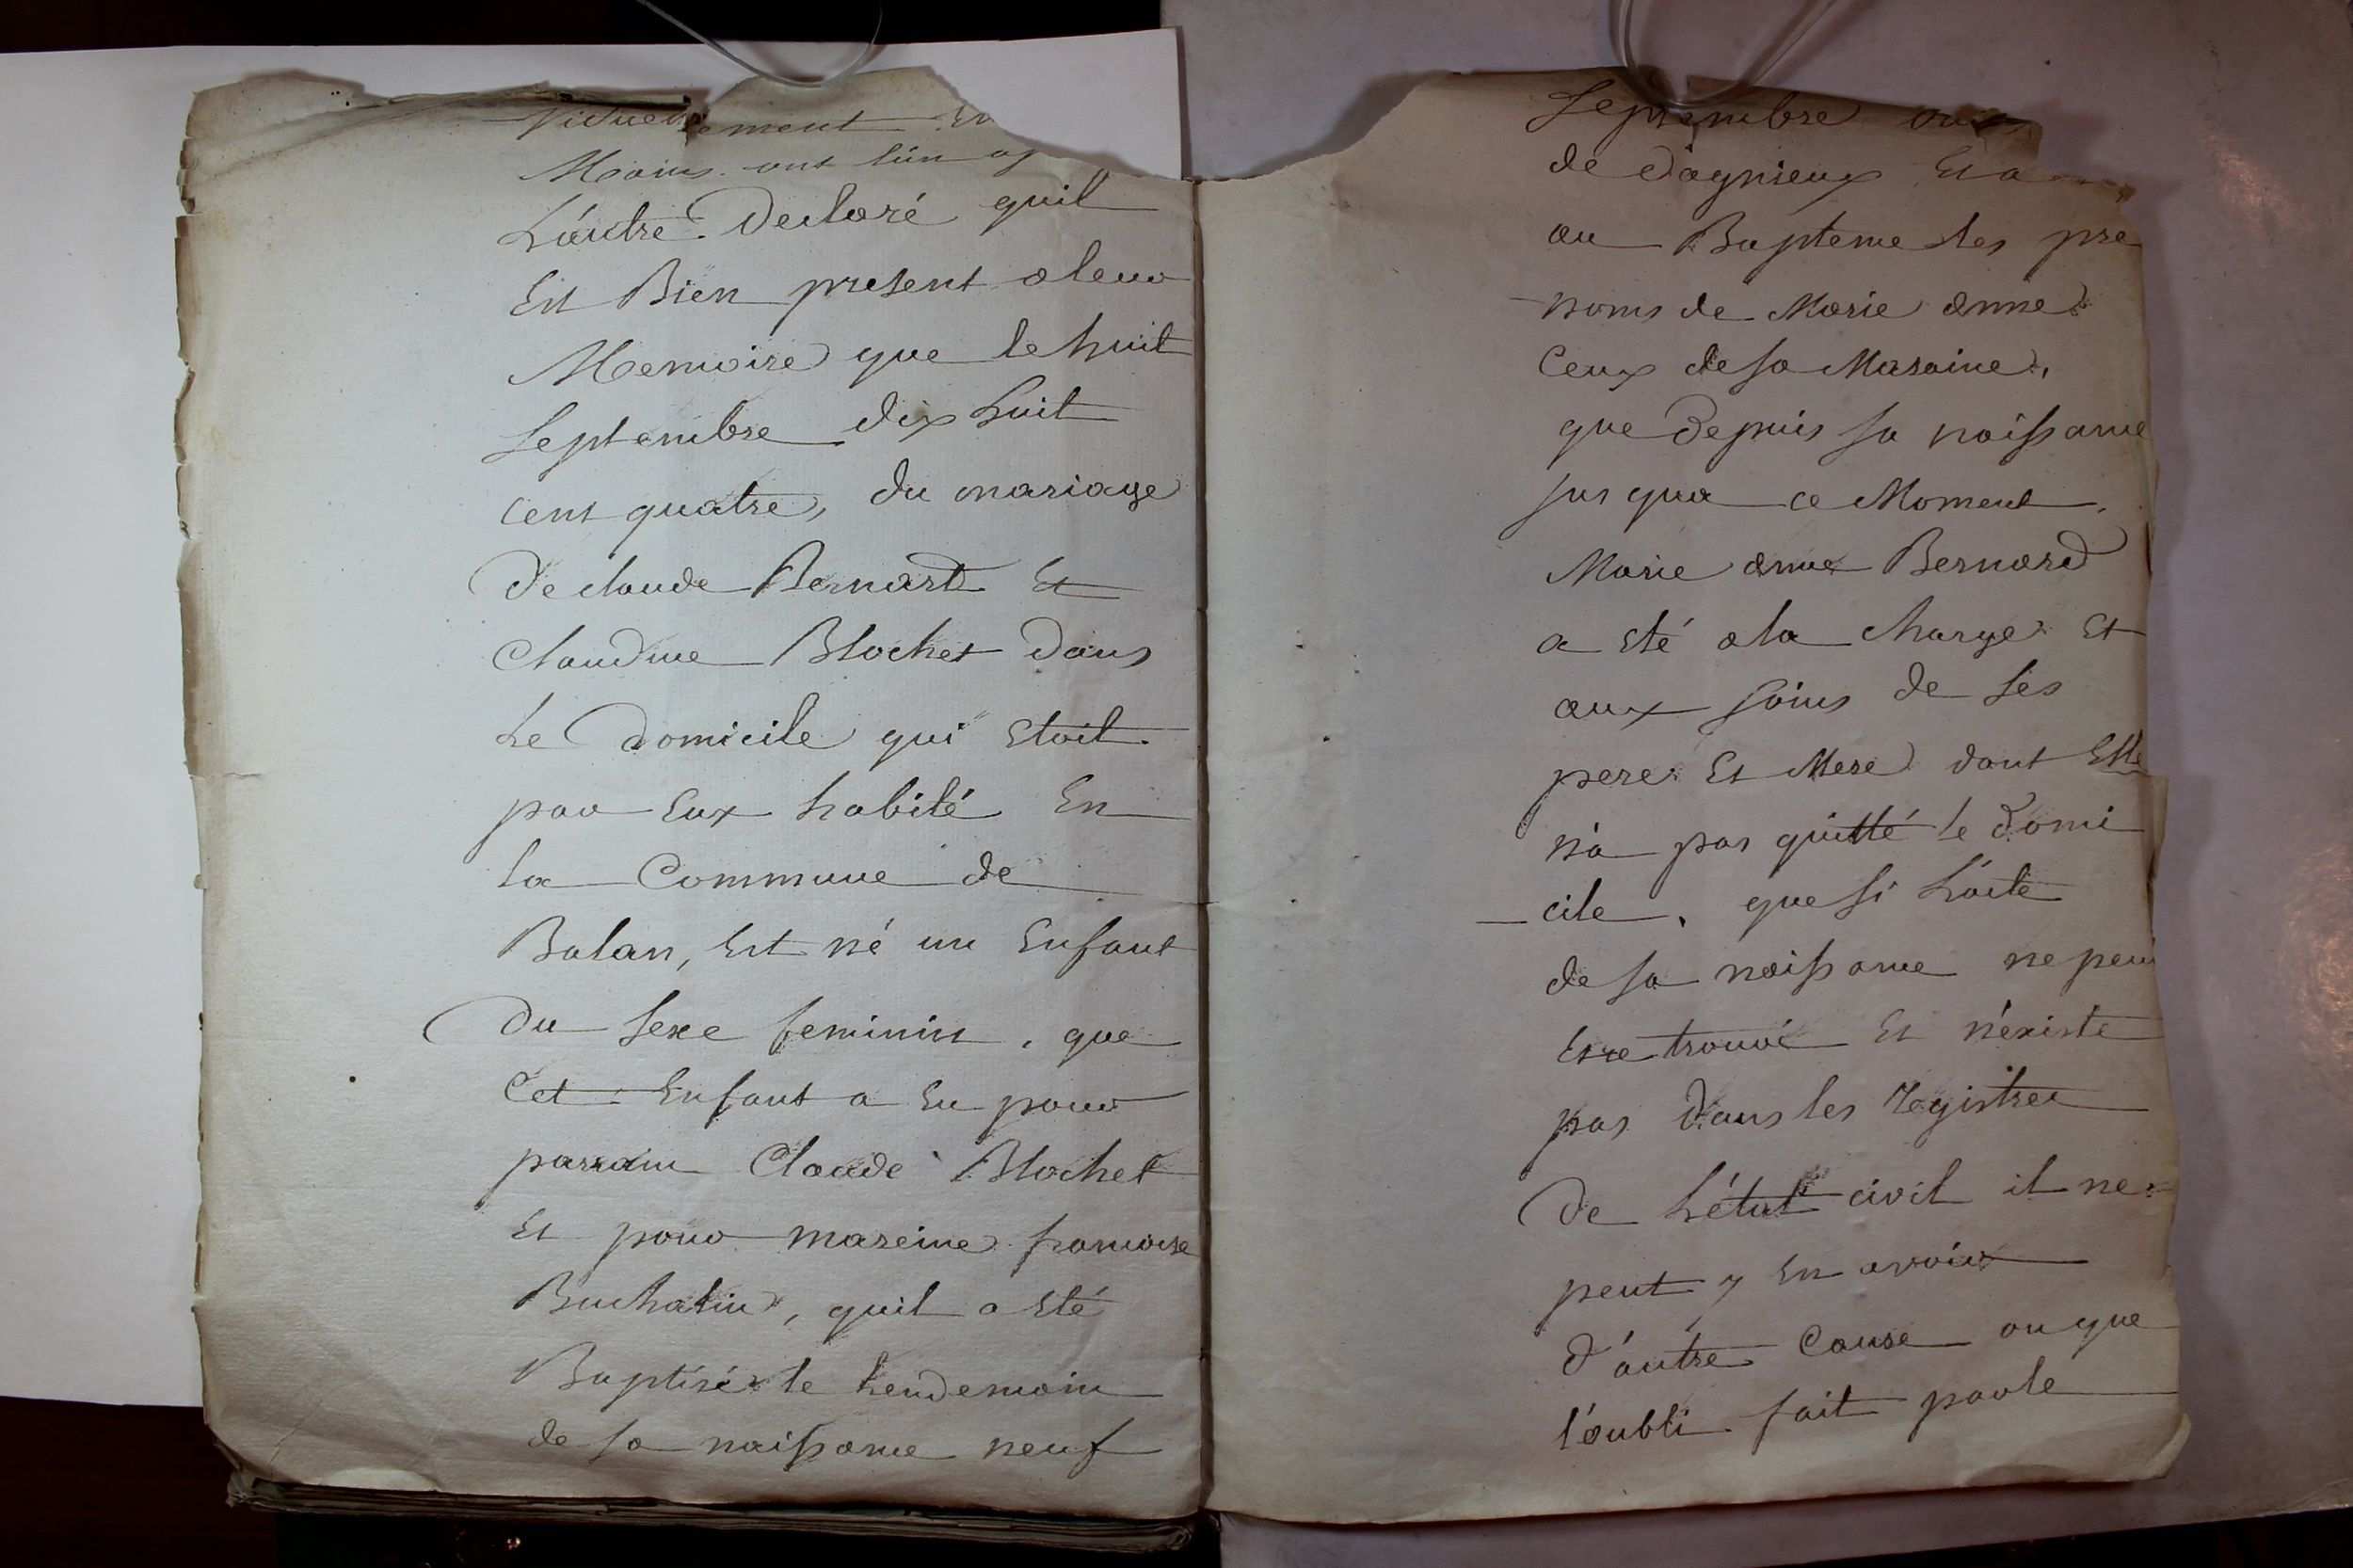 viduellement En
Mains ont l'un a
L'autre Declaré quil
Est Bien present a leur
Memoire que le huit
septembre dix huit
cent quatre, du mariage
De claude Bernard Et
Claudine Blochet Dans
Le Domicile qui Etoit
par Eux habité En
La Commune de
Balan, Est né un Enfant
Du sexe feminin, que
Cet Enfant a Eu pour
parrain Claude Blochet
Et pour mareine francoise
Buchalin, quil a Eté
Baptisé le Lendemain
de sa naissance neuf
septembre
de Dagnieux Et a
au Bapteme les pre
noms de Marie anne
Ceux de sa Maraine,
que Depuis sa naissance
jus qua ce Moment,
Marie anne Bernard
a Eté a la charge Et
aux soins de ses
pere Et Mere dont Elle
n'a pas quitté le Domi
cile, que si L'acte
de sa naissance ne peu
Etre trouvé Et n'existe
pas Dans les registres
De L'état civil il ne
peut y En avoir
d'autre Cause ou que
l'oubli fait par le